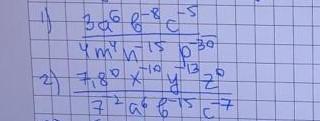 1) 3a⁶ b⁻⁸ c⁻⁵
4m⁴ n⁻¹⁵ p⁻³⁰
2) 7,8⁰ x⁻¹⁰ y⁻¹³ z⁰
7⁻² a⁶ b⁻¹⁵ c⁻⁷